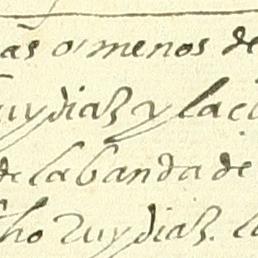 ás o menos de
uydias y la ci
de la banda de
ho Ruydias. la